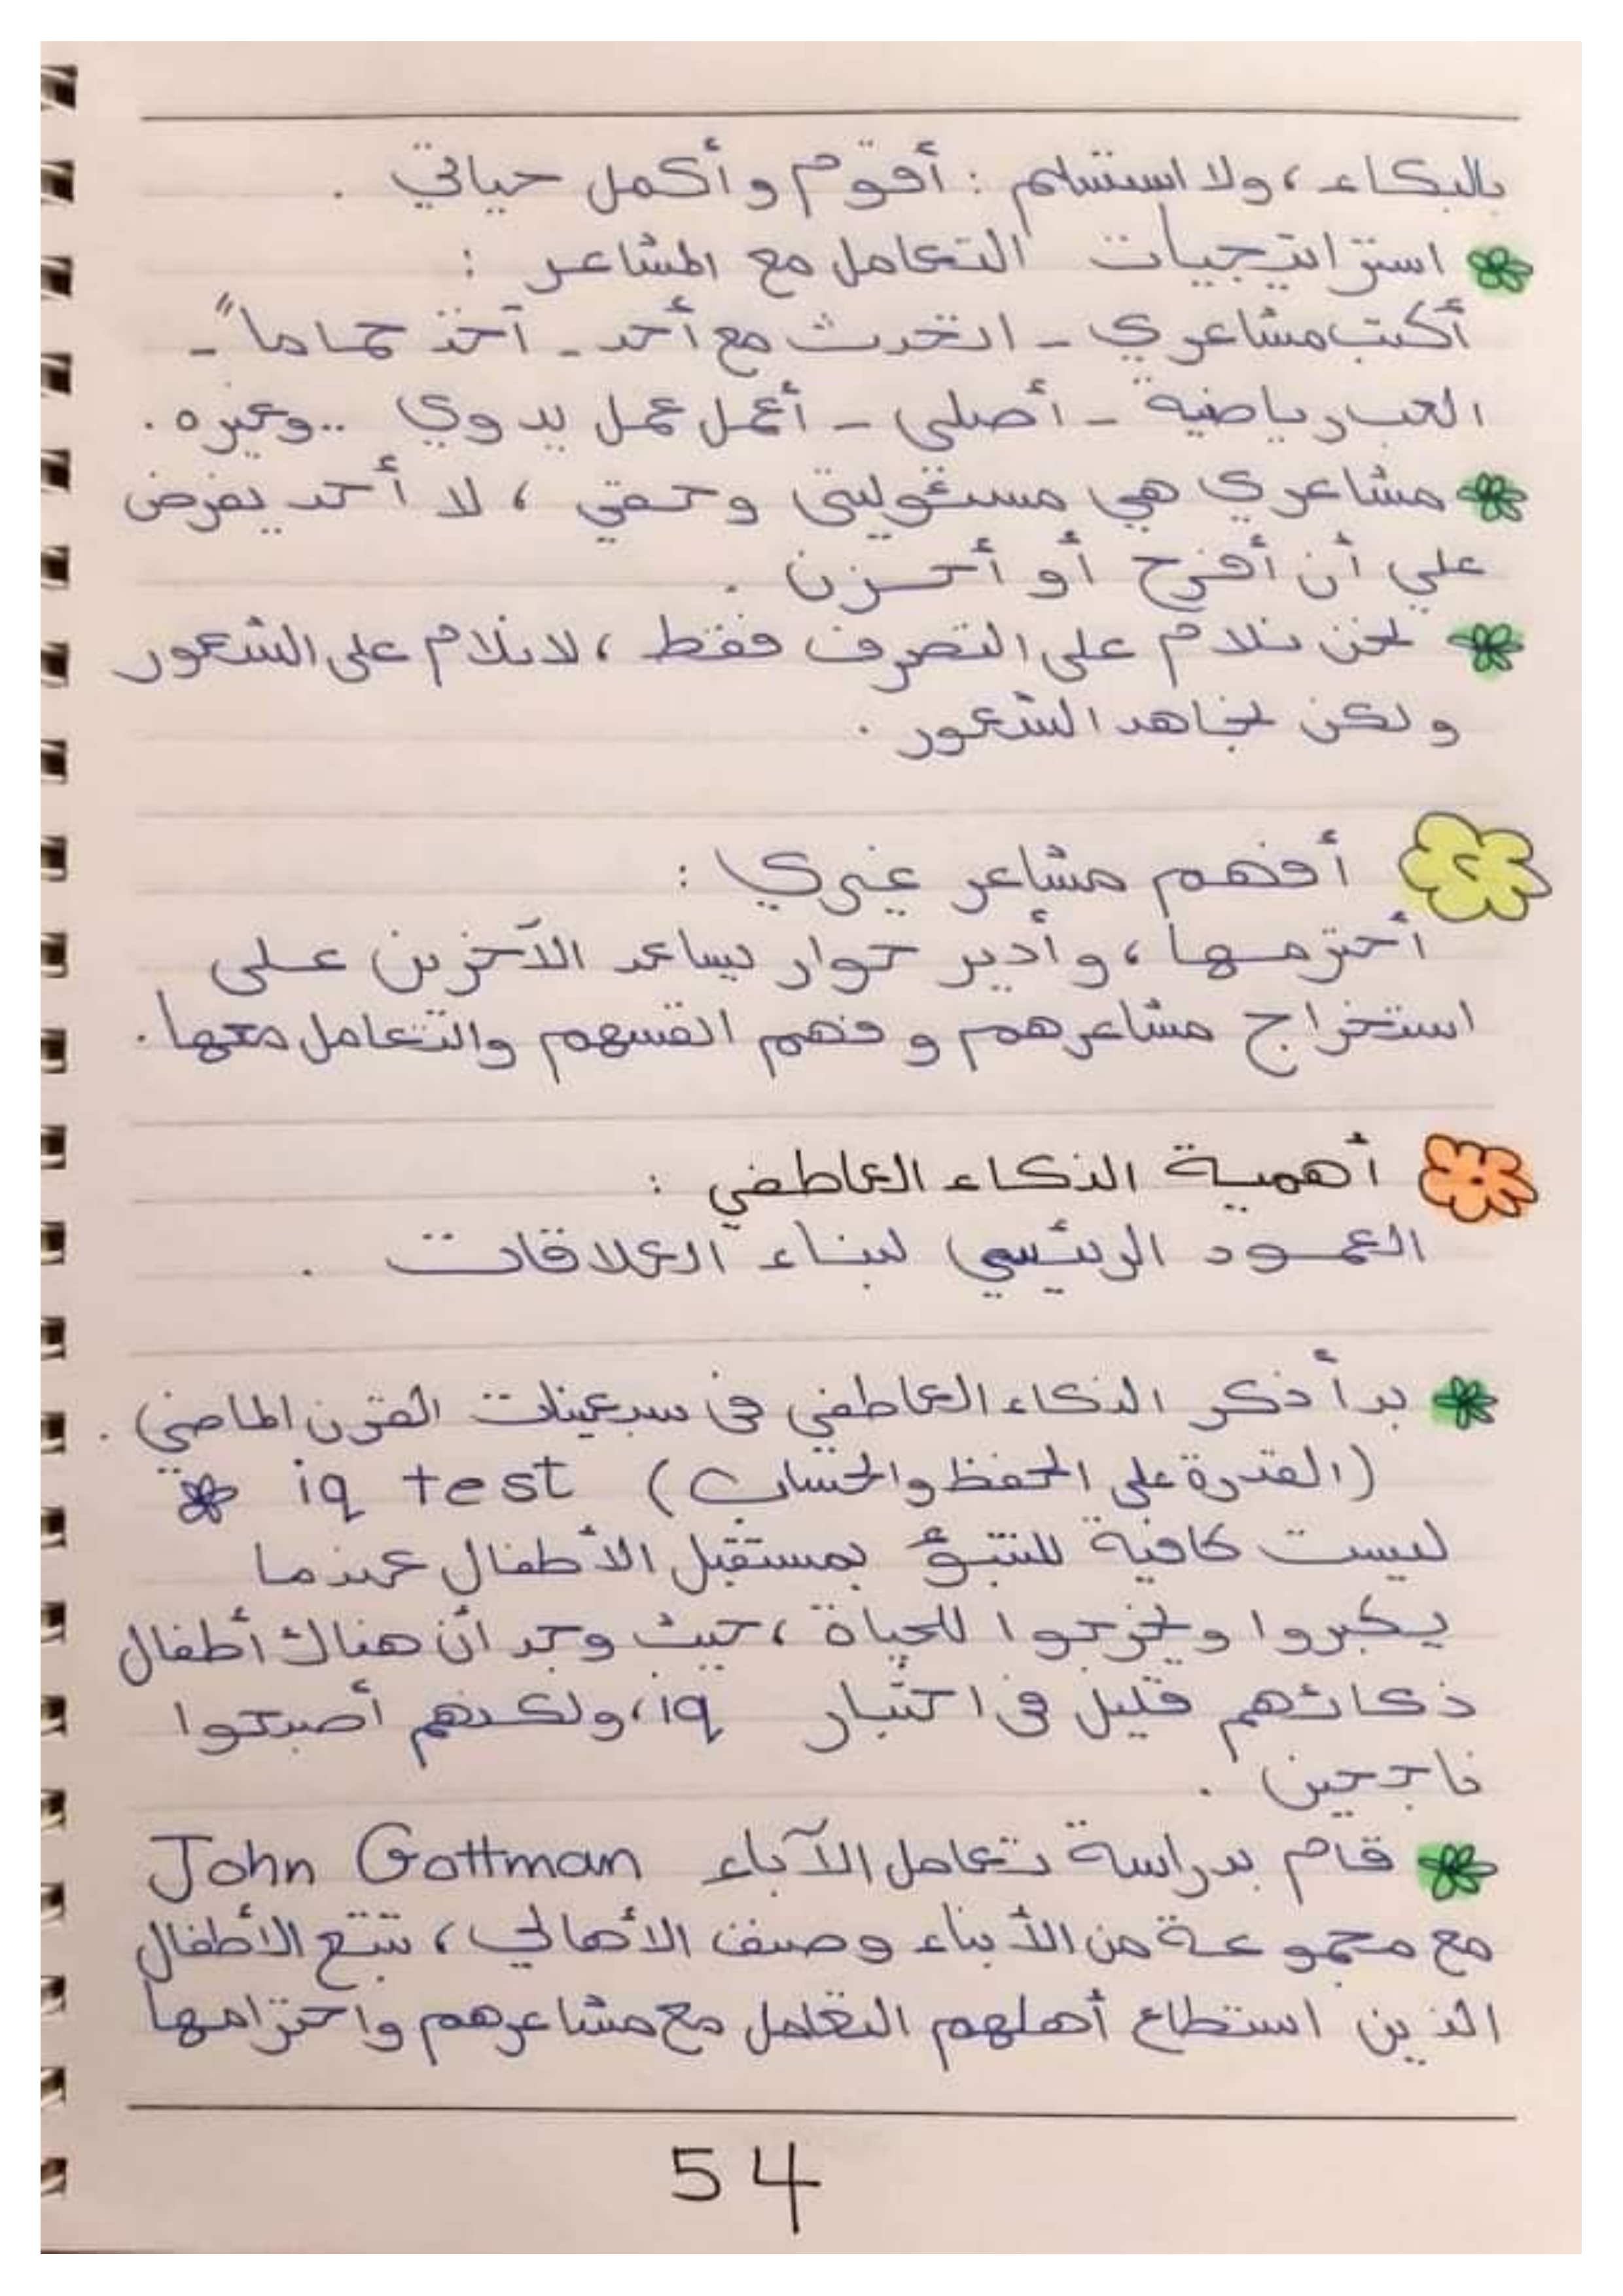 بالبكاء، ولا استسلم : أقوم وأكمل حياتي .
استراتيجيات التعامل مع المشاعر :
أكتب مشاعري - اتحدث مع أحد - آخذ حماماً -
العب رياضية - أصلى - أعمل عمل يدوي .. وغيره .
مشاعري هي مسئوليتى وحقي ، لا أحد يفرض
علي أن أفرح أو أحزن .
نحن نلام على التصرف فقط ، لا نلام على الشعور
ولكن نجاهد الشعور .
٢ أفهم مشاعر غيري :
أحترمها ، وأدير حوار يساعد الآخرين على
استخراج مشاعرهم وفهم انفسهم والتعامل معها .
أهمية الذكاء العاطفي :
العمود الرئيسي لبناء العلاقات .
بدأ ذكر الذكاء العاطفي فى سبعينات القرن الماضي .
(القدرة على الحفظ والحساب) iq test
ليست كافية للتنبؤ بمستقبل الأطفال عندما
يكبروا ويخرجوا للحياة ، حيث وجد أن هناك أطفال
ذكائهم قليل فى اختبار iq ، ولكنهم أصبحوا
ناجحين .
قام بدراسة تعامل الآباء John Gottman
مع مجموعة من الأبناء وصنف الأهالي ، تتبع الأطفال
الذين استطاع أهلهم التعامل مع مشاعرهم واحترامها
54